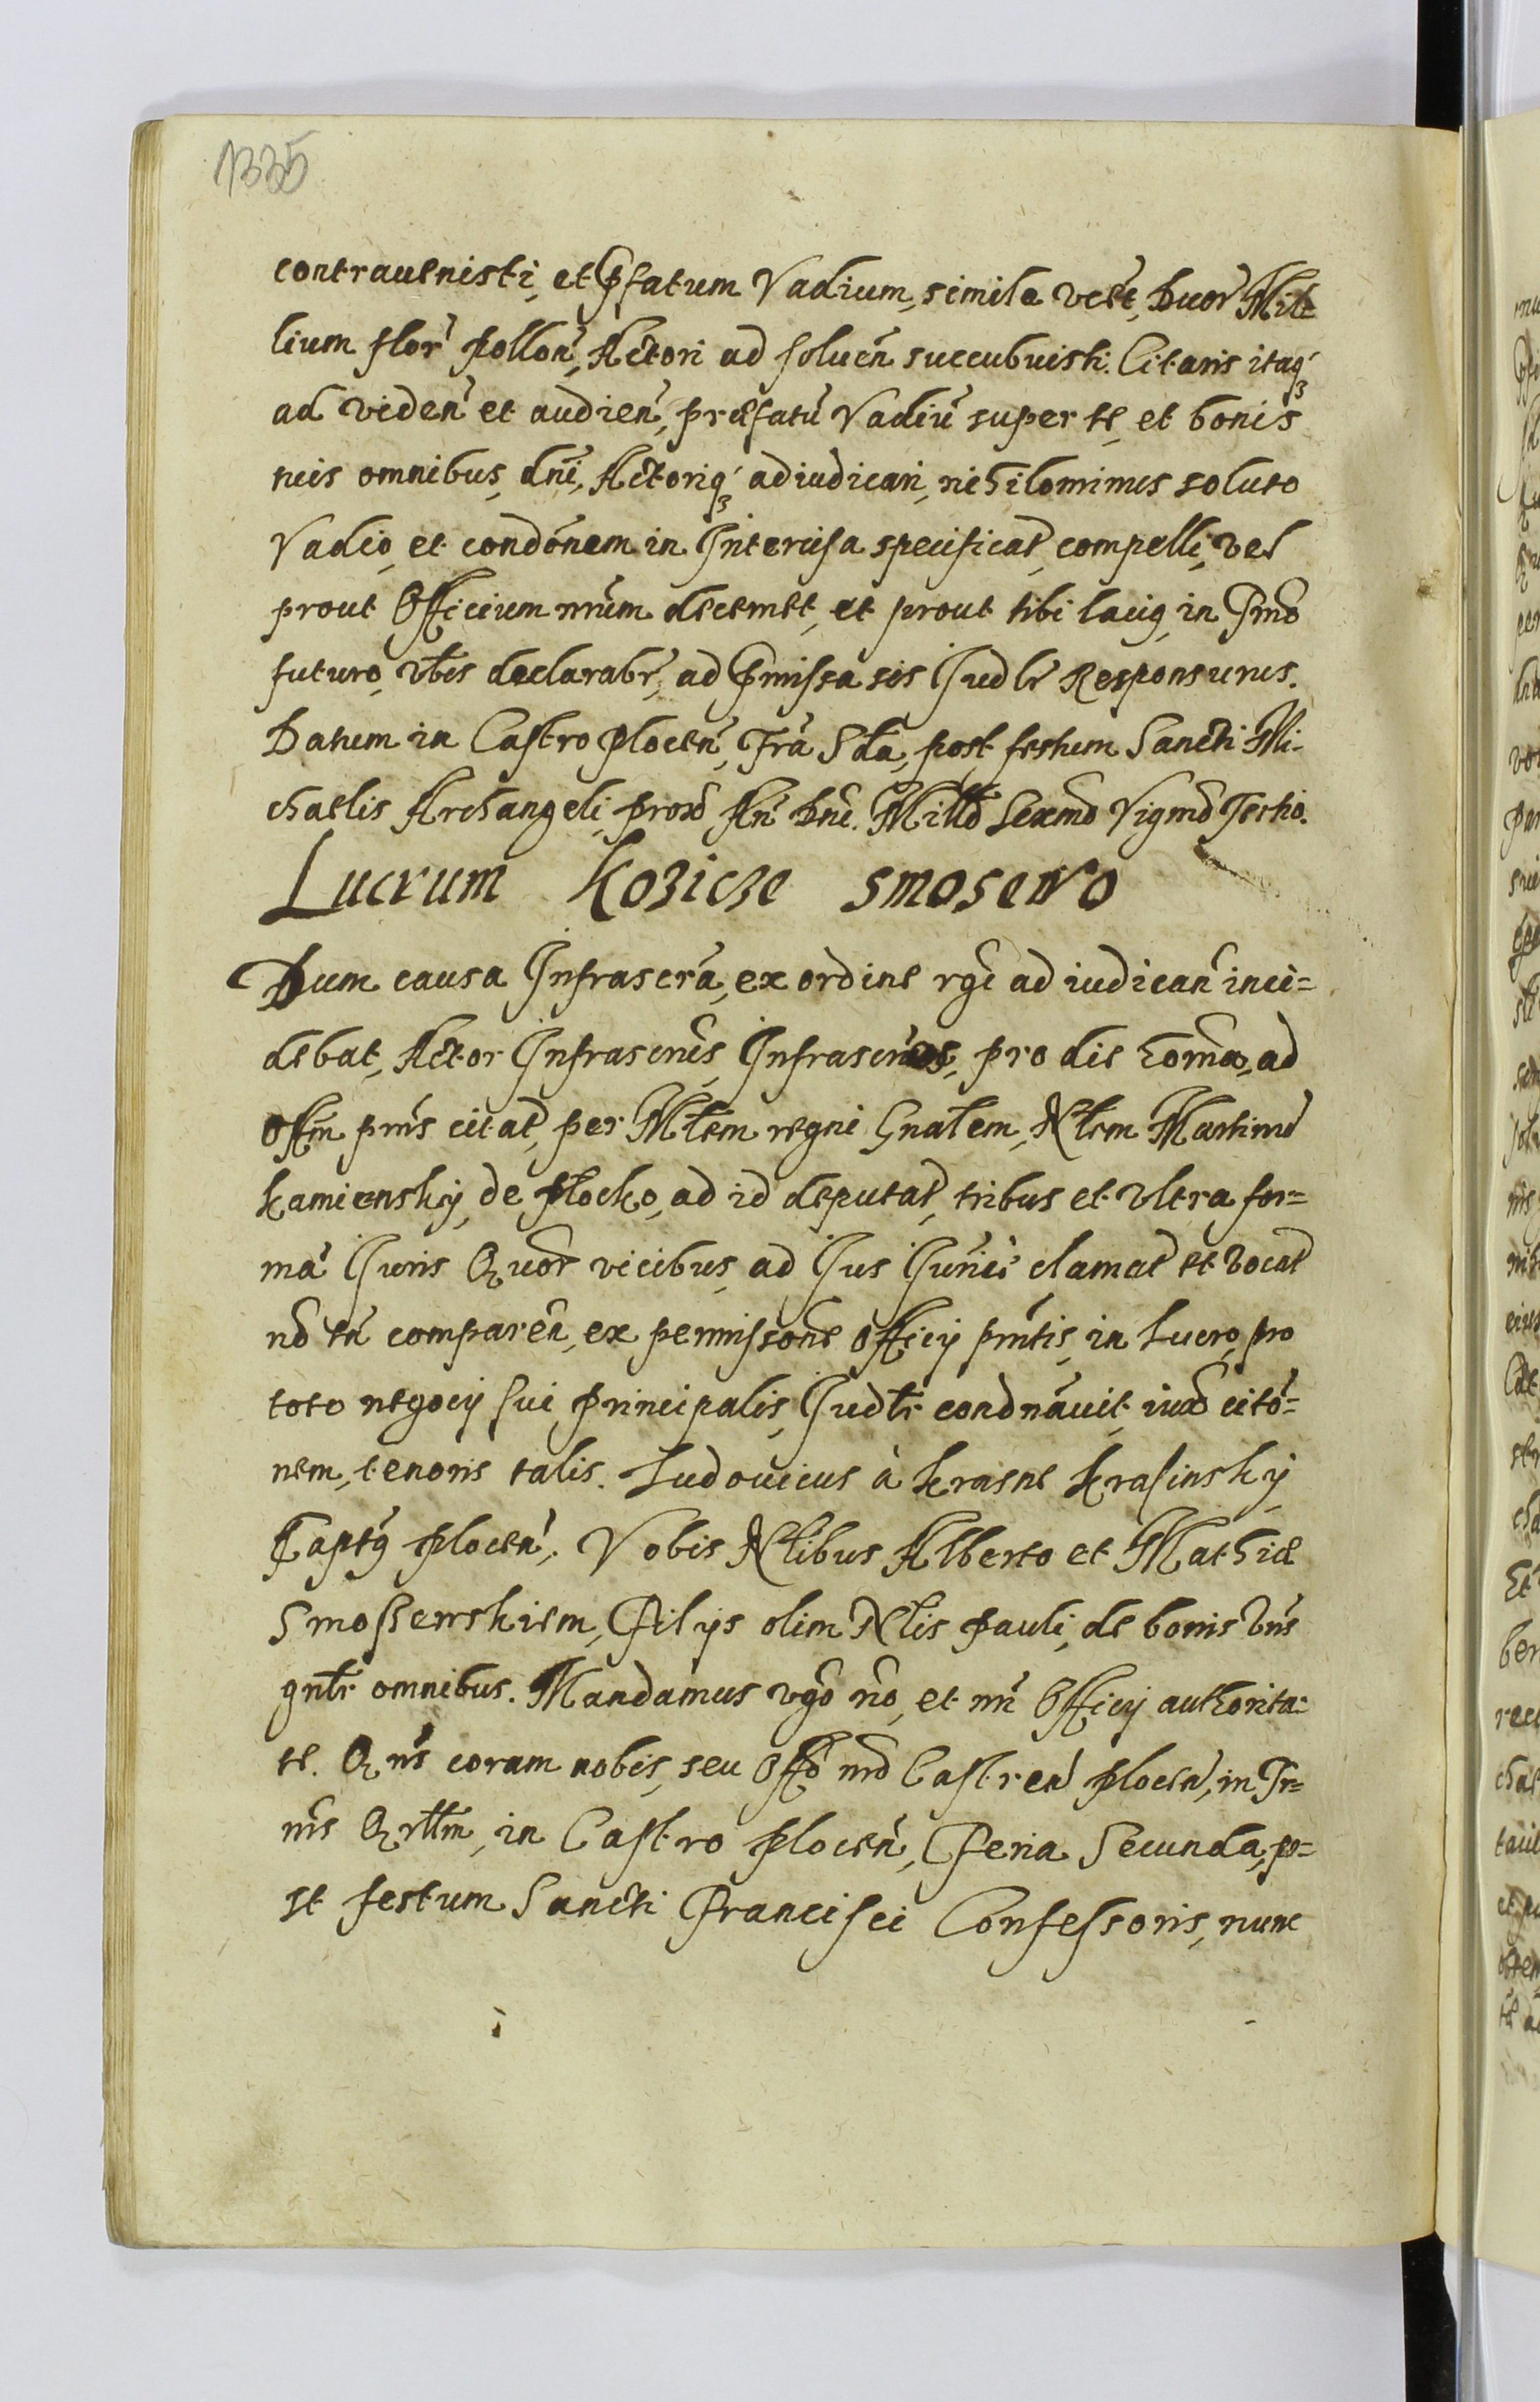 1335
contravenisti, et Pfatum Vadium, simile vełt, Duor̃ Mil
lium flor̃ pollon̄, Actori ad soluen̄ succubuisti. Citaris itaqȝ
ad viden̄ et audien̄, præfatū Vadiū super te, et bonis
tuis omnibus, dnī, Actoriqȝ adiudicari, nihilominus soluto
Vadio, et condōnem in Intercisa specificat̄, compelli, vel
prout Officium nrūm decernet, et prout tibi laciꝯ, in Tm̄o
futuro, vb̄is declarabr̄, ad Pmissa sis Judlr̄ Responsurus.
Datum in Castro Plocen̄, Fr̄a Sdā, post festum Sancti Mi-
chaelis Archangeli, prox̄ An̄ Dn̄i. Mill̄o Sexm̄o Vigm̄o Tertio.
Lucrum Kozicze smosewo
Dum causa Infrascrā, ex ordine rgī ad iudican̄ inci=
debat, Actor Infrascrūs, pro die hōrna, ad
Offm̄ pn̄s citat̄, per Młem regni Gnałem, Nłem Martinū
Kamienskij, de Plocko, ad id deputat̄, tribus et vltra for=
mā Juris Quor̄ vicibus, ad Jus Juriū clamat̄ et vocat̄
nō tn̄ comparēn, ex permissone Officij pn̄tis, in Lucro, pro
toto negocij sui principalis, Judłr condnāuit, iux̄ citō=
nem, tenoris talis. Ludovicus à Krasne Krasinskij
Captꝯ Plocen̄. Vobis Nłibus Alberto et Mathiæ
Smossewskiem, Filijs olim Nłis Pauli, de bonis vr̄is
gnłr omnibus. Mandamus vgō nō, et nr̄i Officij authorita:
te. Qn̄s coram nobis, seu Offo nrō Castren̄ Plocen̄, in Tr=
nis Qrłłm, in Castro Plocen̄, Feria Secunda, po=
st festum Sancti Francisci Confessoris, nunc